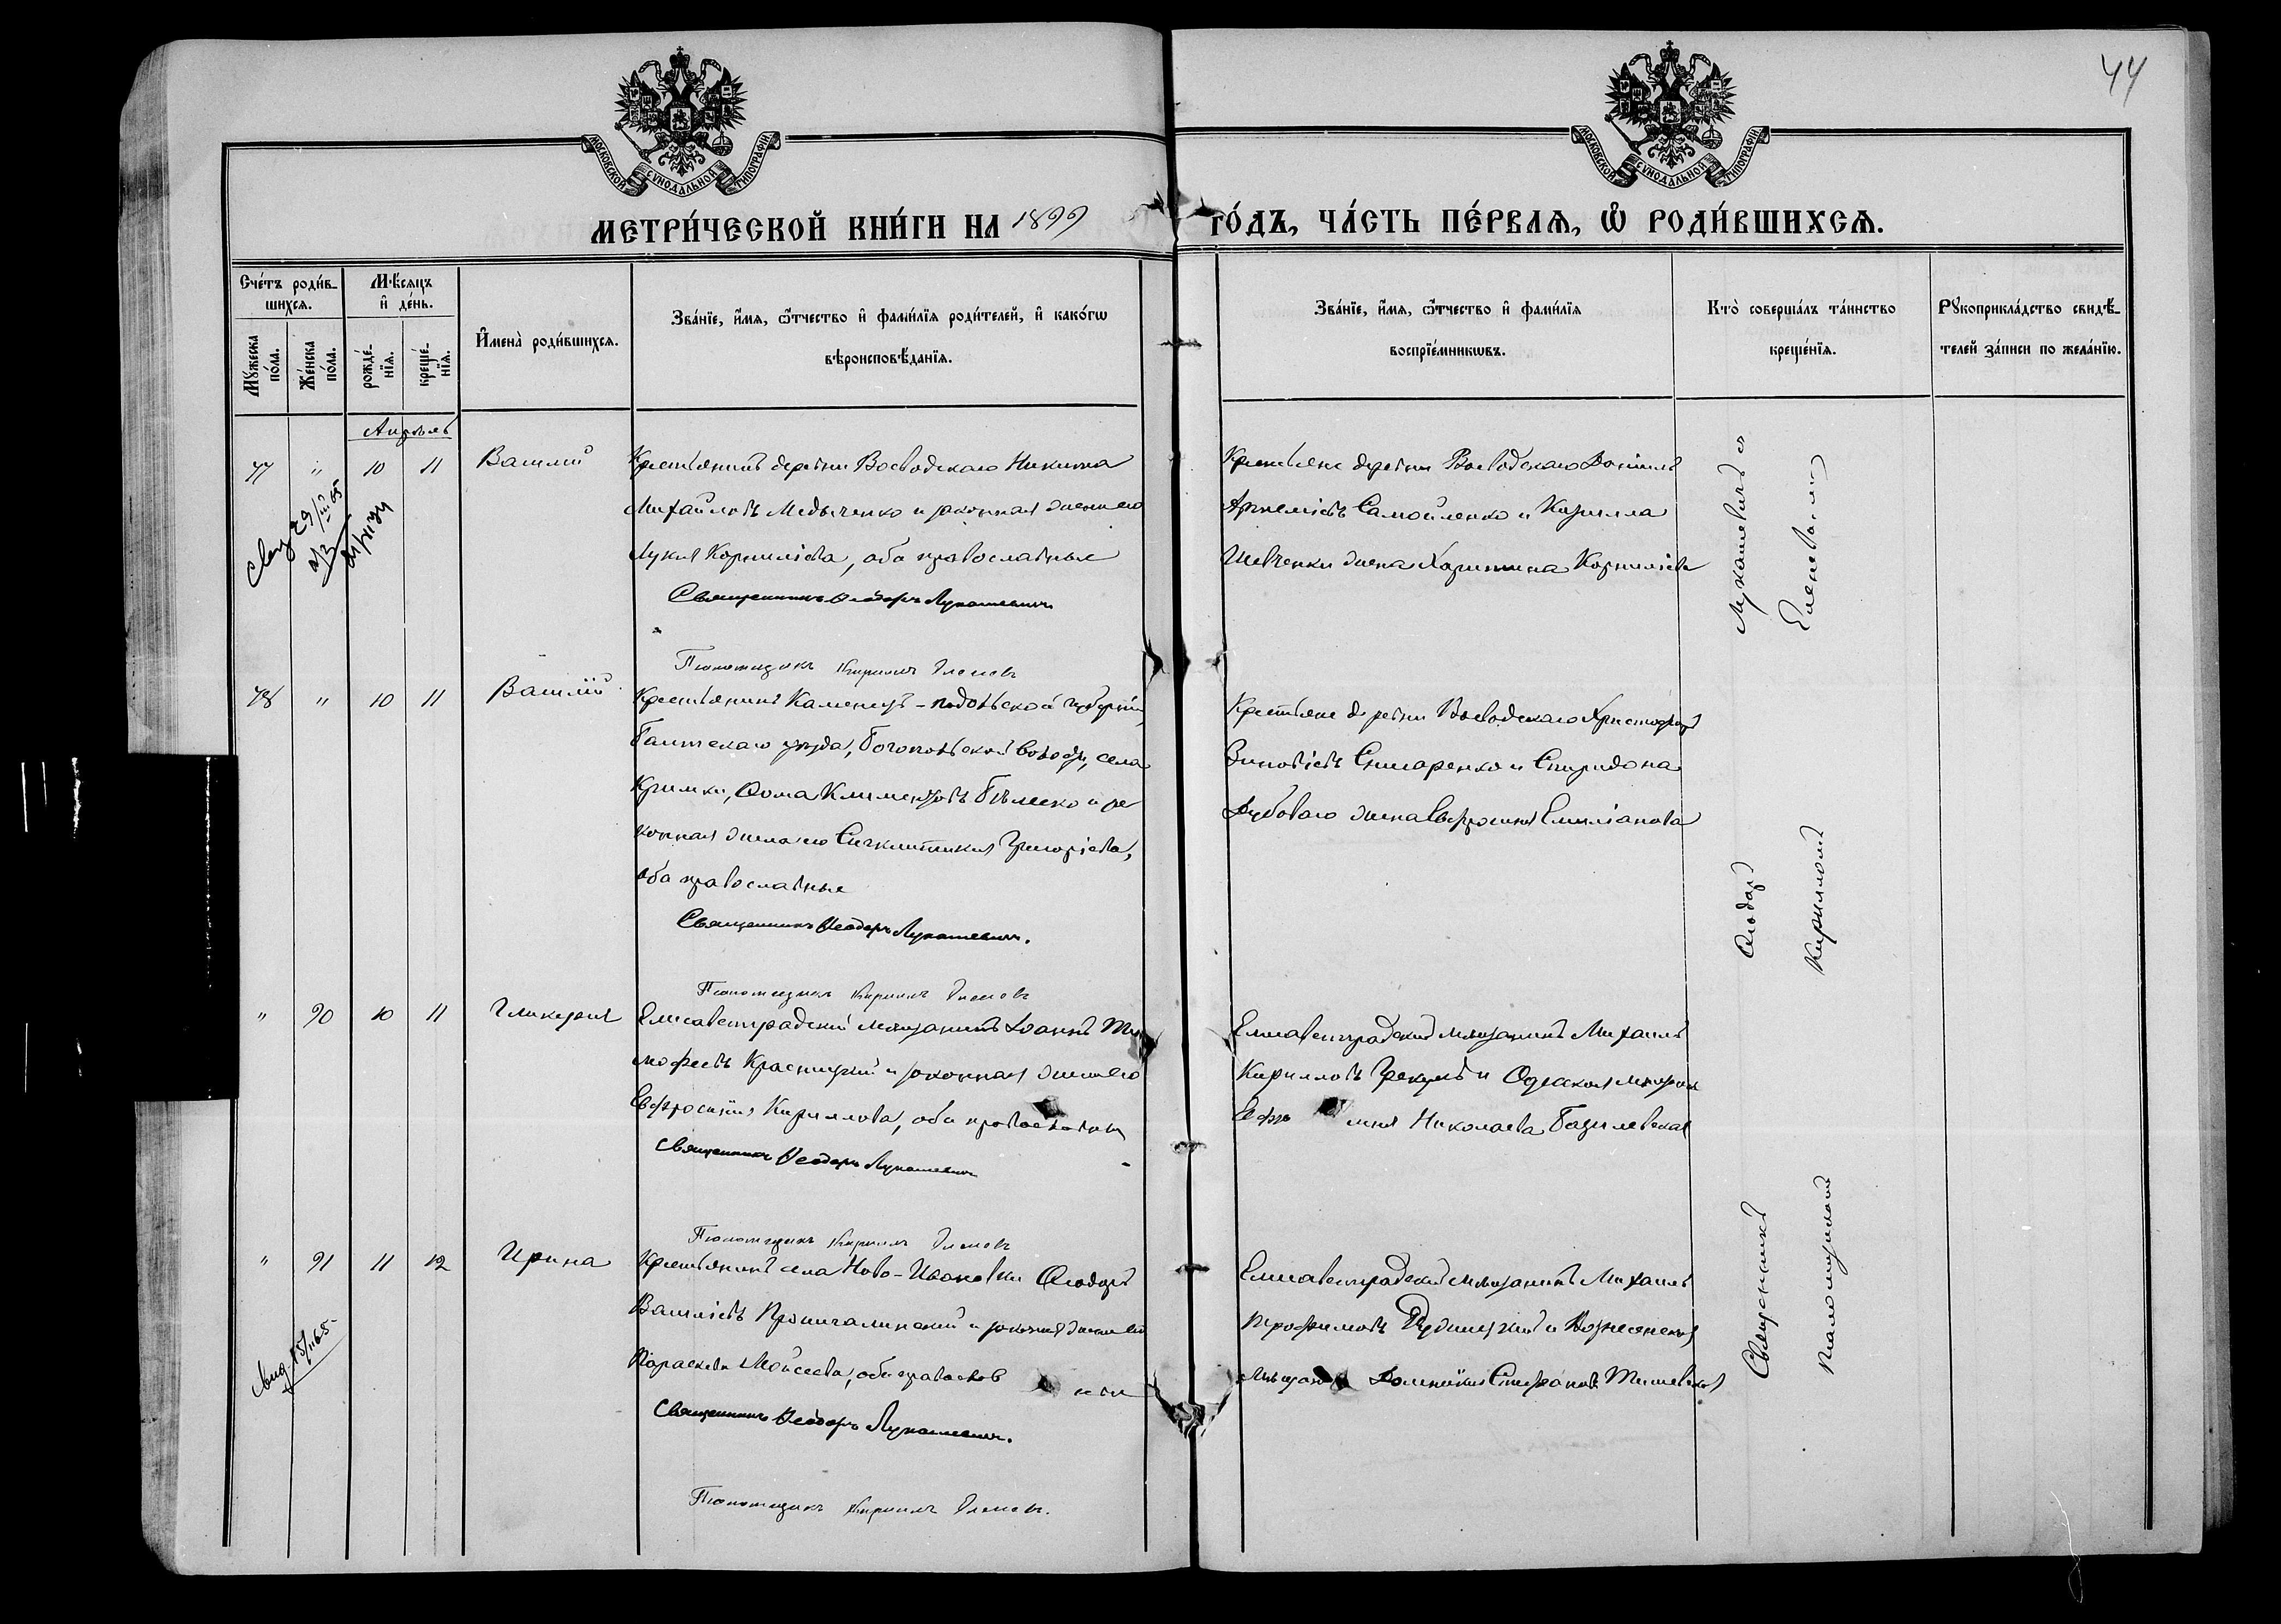 44
МОСКОВСКОЙ СУНОДАЛЬНОЙ ТИПОГРАФІИ
МОСКОВСКОЙ СУНОДАЛЬНОЙ ТИПОГРАФІИ
МЕТРИ́ЧЕСКОЙ КНИ́ГИ НА 1899 ГО́ДЪ, ЧА́СТЬ ПЕ́РВАѦ, Ѽ РОДИ́ВШИХСѦ.
Сче́тъ роди́в-
шихсѧ.
Мꙋ́жеска по́ла.
Же́нска по́ла.
Мѣ́сѧцъ
и҆ де́нь.
рожде́-
нїѧ.
креще́-
нїѧ.
И҆мена̀ роди́вшихсѧ.
Зва́нїе, и҆́мѧ, ѻ҆́тчество и҆ фами́лїѧ роди́телей, и҆ како́гѡ
вѣроисповѣ́данїѧ.
Зва́нїе, и҆́мѧ, ѻ҆́тчество и҆ фами́лїѧ
воспрїе́мникѡвъ.
Кто̀ соверша́лъ та́инство
креще́нїѧ.
Рꙋкоприкла́дство свидѣ́-
телей за́писи по жела́нїю.
Апрѣль
77 " 10 11 Василій
Крестьянинъ деревни Воеводскаго Никита
Михайловъ Медыченко и законная жена его
Лукия Корниліева, оба православные
Священникъ Ѳеодоръ Лукашевичъ
Псаломщикъ Кириллъ Еленевъ
Крестьяне деревни Воеводскаго Даніилъ
Артеміевъ Самойленко и Кирилла
Шевченки жена Харитина Корниліева
78 " 10 11 Василій
Крестьянинъ Каменецъ-подольской губерніи,
Балтскаго уѣзда, Богопольской волости, села
Кримки, Ѳома Климентовъ и за
конная жена его Сигклитикія Григоріева,
оба православные
Священникъ Ѳеодоръ Лукашевичъ.
Псаломщикъ Кириллъ Еленевъ
Крестьяне деревни Воеводскаго Христофоръ
Зиновіевъ Слюсаренко и Спиридона
Дубоваго жена Евфросинія Емиліанова
" 90 10 11 Гликерія
Елисаветградскій мѣщанинъ Іоаннъ Ти
мофеевъ Красницкій и законная жена его
Евфросинія Кириллова, оба православные
Священникъ Ѳеодоръ Лукашевичъ
Псаломщикъ Кириллъ Еленевъ
Елисаветградскій мѣщанинъ Михаилъ
Кирилловъ и Одесская мѣщанка
Евфро синія Николаева Базилевская
" 91 11 12 Ирина
Крестьянинъ села Ново-Ивановки Ѳеодоръ
Василіевъ и законная жена его
Параскева Моисеева, оба православ ные
Священникъ Ѳеодоръ Лукашевичъ.
Псаломщикъ Кириллъ Еленевъ.
Елисаветградскій мѣщанинъ Михаилъ
Трофимовъ Рудницкій и Вознесенская
мѣщанка Домникія Стефанова
Священникъ Ѳеодоръ Лукашевичъ съ
псаломщикомъ Кирилломъ Еленевымъ